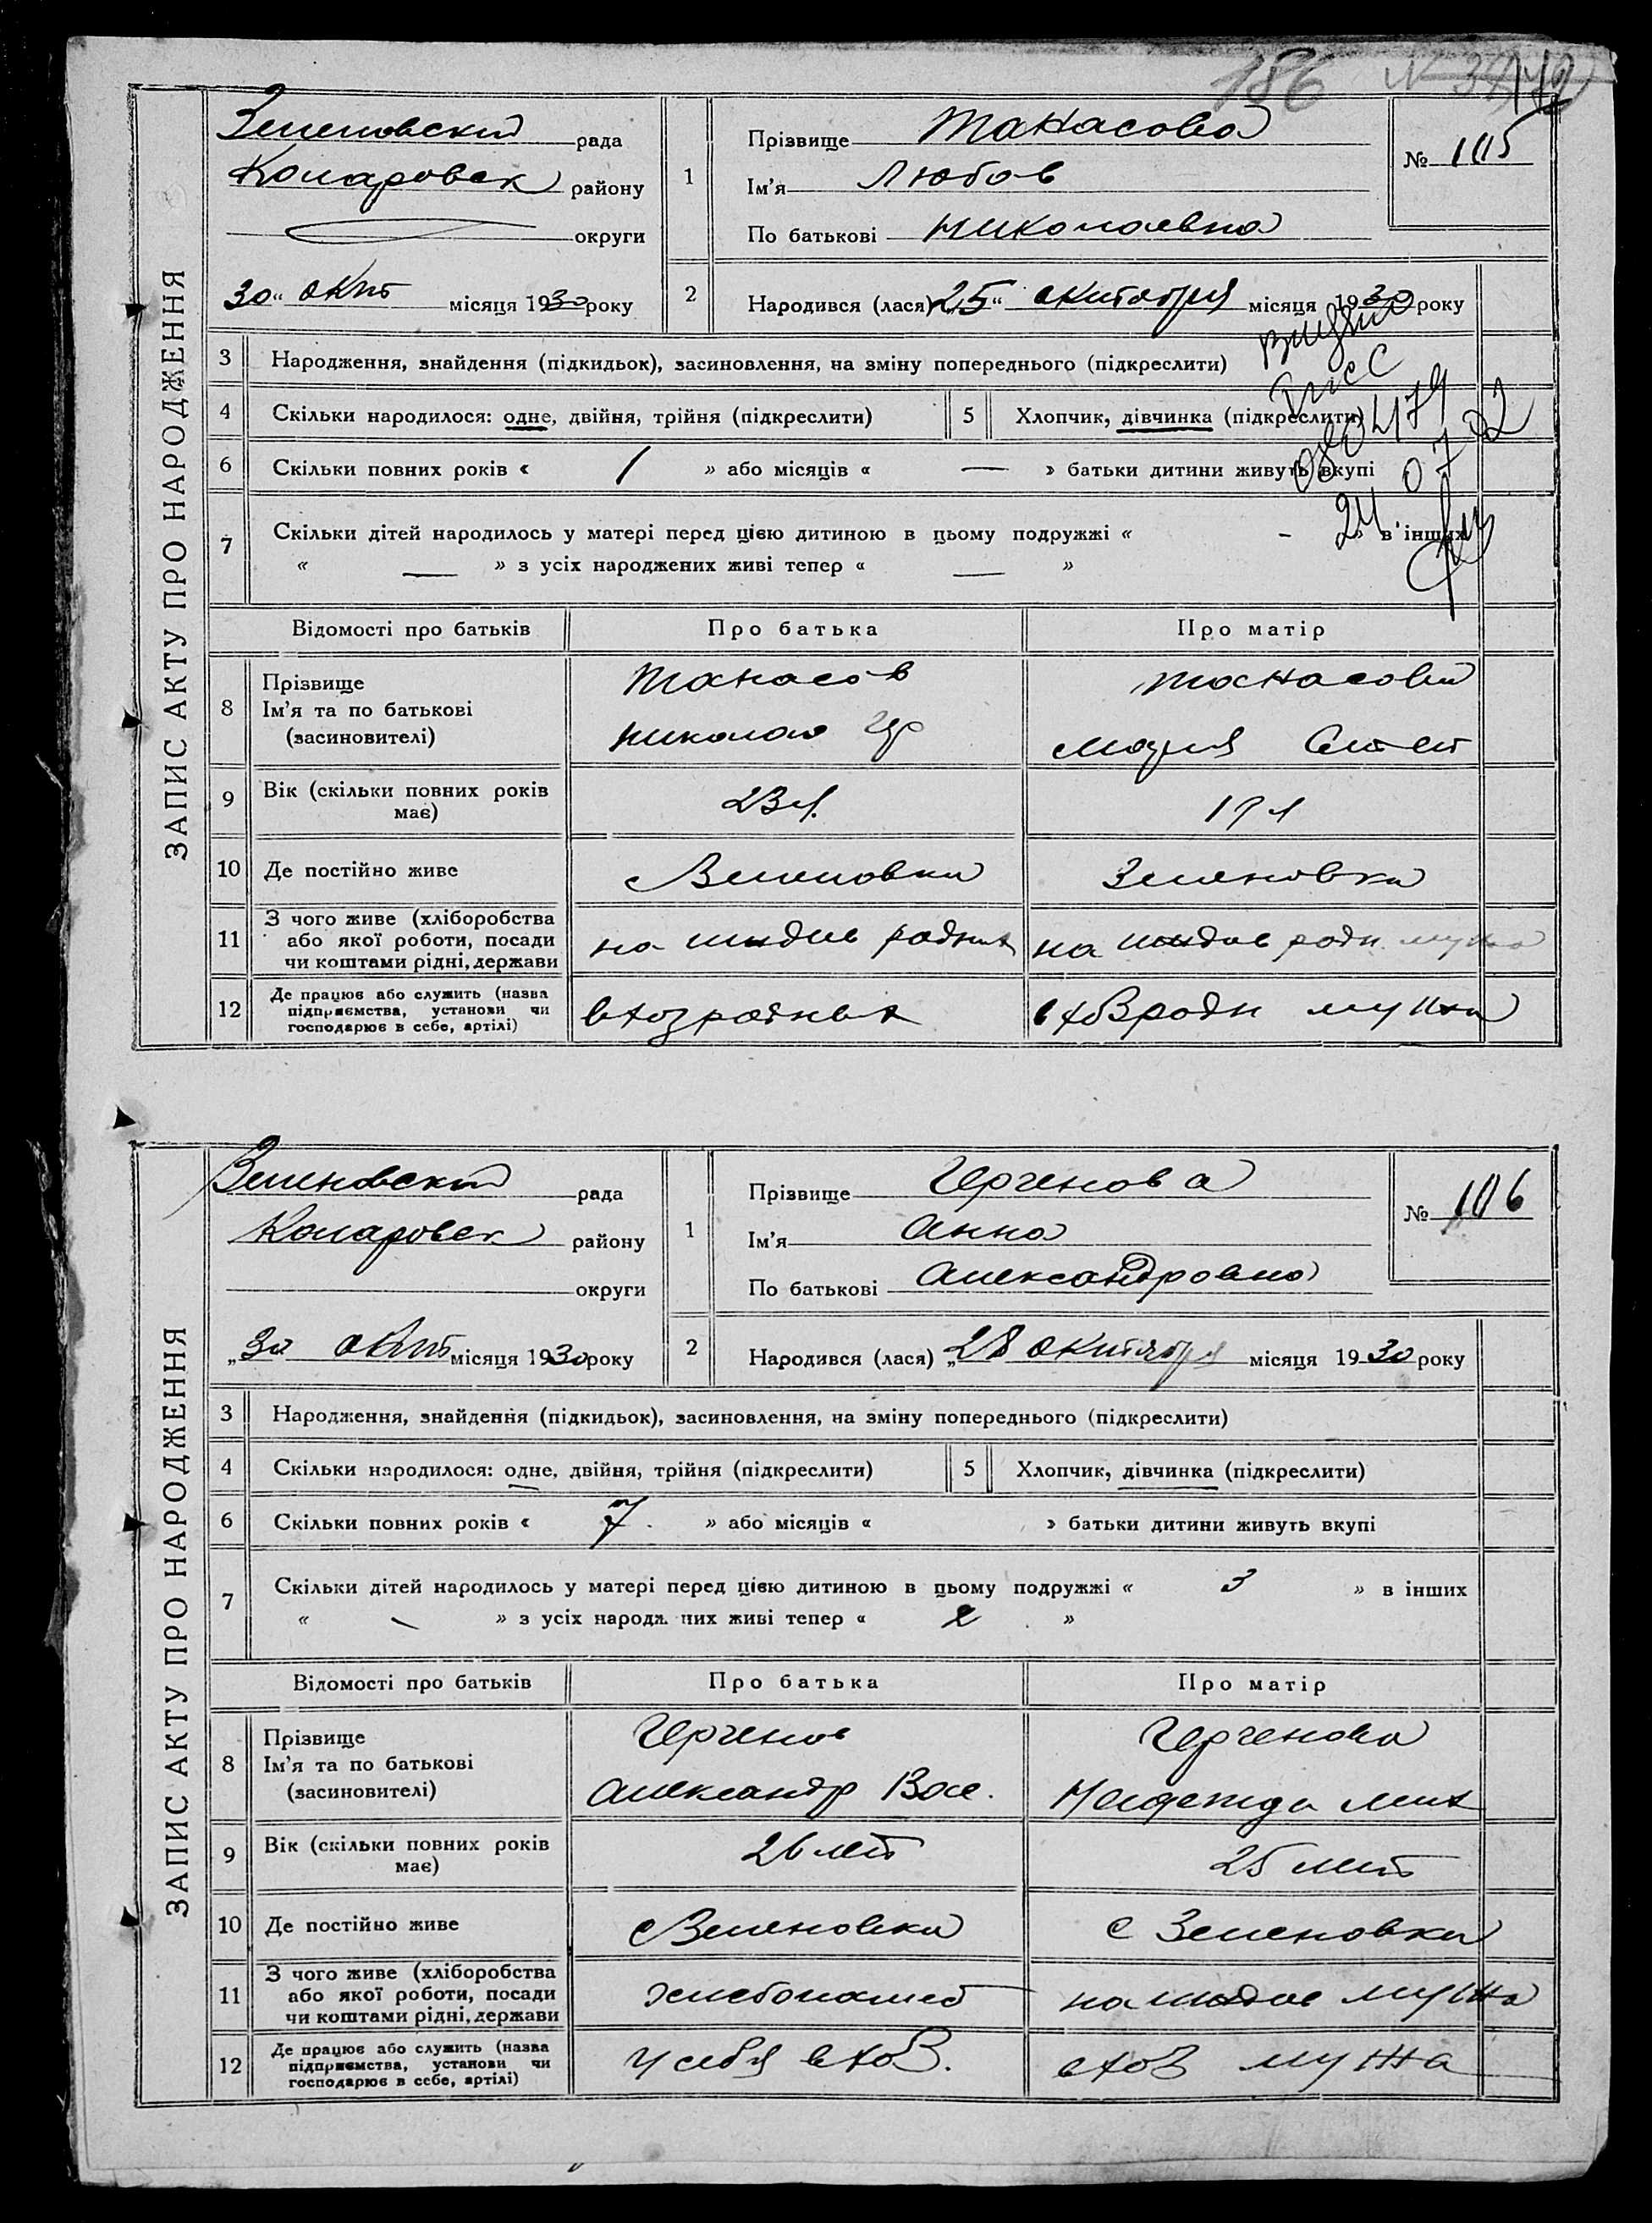 186
ЗАПИС АКТУ ПРО НАРОДЖЕННЯ
Зеленовский рада
Коларовск району
округи
30 " окт місяця 1930 року
1
Прізвище Танасова
Ім'я Любов
По батькові Николаевна
№ 105
2
Народився (лася) „25" октября місяця 1930 року
3 Народження, знайдення (підкидьок), засиновлення, на зміну попереднього (підкреслити)
4 Скільки народилося: одне, двійня, трійня (підкреслити)
5 Хлопчик, дівчинка (підкреслити)
6 Скільки повних років « 1 » або місяців « — » батьки дитини живуть вкупі
7 Скільки дітей народилось у матері перед цією дитиною в цьому подружжі « - » в інших
« — » з усіх народжених живі тепер « — »
24 07 92
Відомості про батьків Про батька Про матір
8 Прізвище
Ім'я та по батькові
(засиновителі)
Танасов
Николай Гр
Танасова
Мария Степ
9 Вік (скільки повних років
має)
23 л.
19 л
10 Де постійно живе
с Зеленовка
Зеленовка
11 З чого живе (хліборобства
або якої роботи, посади
чи коштами рідні, держави
на иждив родных
на иждив родн. мужа
12 Де працює або служить (назва
підприємства, установи чи
господарює в себе, артілі)
в хоз родных
в хоз родн мужа
ЗАПИС АКТУ ПРО НАРОДЖЕННЯ
Зеленовский рада
Коларовск району
округи
„30 окт місяця 1930 року
1
Прізвище Герченова
Ім'я Анна
По батькові Александровна
№ 106
2
Народився (лася) „28 октября місяця 1930 року
3 Народження, знайдення (підкидьок), засиновлення, на зміну попереднього (підкреслити)
4 Скільки народилося: одне, двійня, трійня (підкреслити)
5 Хлопчик, дівчинка (підкреслити)
6 Скільки повних років « 7 » або місяців « » батьки дитини живуть вкупі
7 Скільки дітей народилось у матері перед цією дитиною в цьому подружжі « 3 » в інших
« — » з усіх народж них живі тепер « 2 »
Відомості про батьків Про батька Про матір
8 Прізвище
Ім'я та по батькові
(засиновителі)
Герченов
Александр Вас.
Герченова
Надежда Мих
9 Вік (скільки повних років
має)
26 лет
25 лет
10 Де постійно живе
с Зеленовка
с Зеленовка
11 З чого живе (хліборобства
або якої роботи, посади
чи коштами рідні, держави
хлебопашес
на иждив мужа
12 Де працює або служить (назва
підприємства, установи чи
господарює в себе, артілі)
у себя в хоз.
в хоз мужа